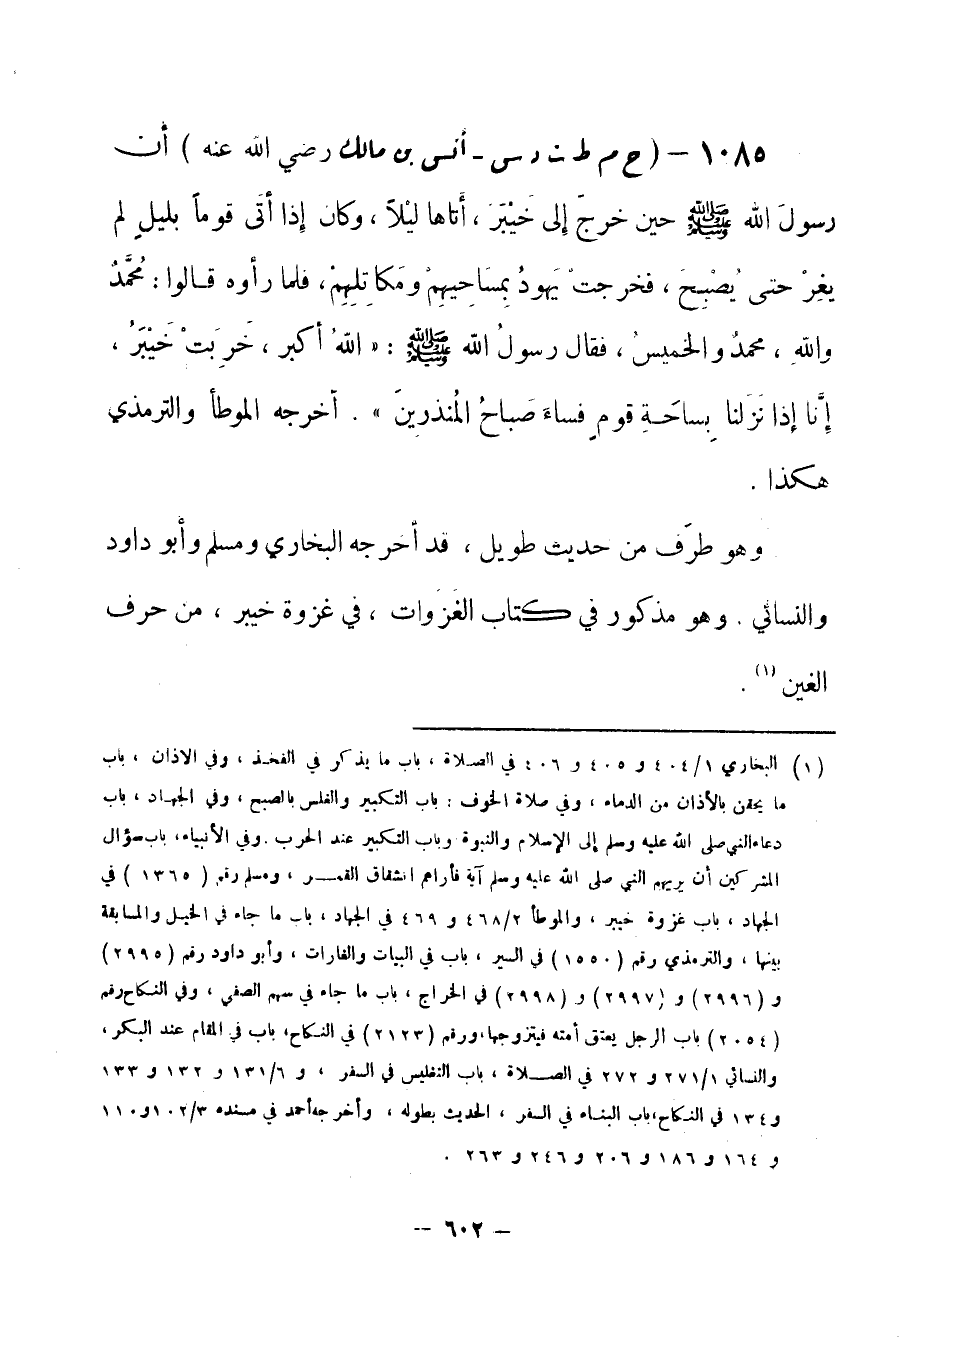 ١٠٨٥ – ( خ م ط ت د س - أنس بن مالك رضي الله عنه ) أن
رسولَ الله ﷺ حين خرجَ إلى خَيْبَرَ ، أَتاها ليْلاً ، وكان إذا أتَى قوماً بليلٍ لم
يغِرْ حتى يُصْبِحَ ، فخرجتْ يَهودُ بِمسَاحِيهِمْ ومَكاتِلِهِمْ، فلما رأوه قالوا : مُحمَّدٌ
واللهِ ، محمدٌ والخميسُ ، فقال رسولُ الله ﷺ : « اللهُ أكبر ، خَرِبَتْ خَيْبَرُ ،
إِنَّا إذا نَزَلنا بِساحَةِ قومٍ فساءَ صَباحُ المُنذرِينَ » . أخرجه الموطأ والترمذي
هكذا .
وهو طرَف من حديث طويل ، قد أخرجه البخاري ومسلم وأبو داود
والنسائي . وهو مذكور في كتاب الغَزَوات ، في غزوة خيبر ، من حرف
الغين (١) .
(١) البخاري ٤٠٤/١ و ٤٠٥ و ٤٠٦ في الصلاة ، باب ما يذكر في الفخذ ، وفي الاذان ، باب
ما يحقن بالأذان من الدماء ، وفي صلاة الخوف : باب التكبير والغلس بالصبح ، وفي الجهاد ، باب
دعاء النبي صلى الله عليه وسلم إلى الإسلام والنبوة وباب التكبير عند الحرب . وفي الأنبياء، باب سؤال
المشركين أن يريهم النبي صلى الله عليه وسلم آية فأراهم انشقاق القمر ، ومسلم رقم ( ١٣٦٥ ) في
الجهاد ، باب غزوة خيبر ، والموطأ ٤٦٨/٢ و ٤٦٩ في الجهاد ، باب ما جاء في الخيل والمسابقة
بينها ، والترمذي رقم (١٥٥٠) في السير ، باب في البيات والغارات ، وأبو داود رقم (٢٩٩٥)
و (٢٩٩٦) و (٢٩٩٧) و (٢٩٩٨) في الخراج ، باب ما جاء في سهم الصفي ، وفي النكاح رقم
(٢٠٥٤) باب الرجل يعتق أمته فيتزوجها، ورقم (٢١٢٣) في النكاح، باب في المقام عند البكر ،
والنسائي ٢٧١/١ و ٢٧٢ في الصلاة ، باب التغليس في السفر ، و ١٣١/٦ و ١٣٢ و ١٣٣
و ١٣٤ في النكاح، باب البناء في السفر ، الحديث بطوله ، وأخرجه أحمد في مسنده ١٠٢/٣ و ١١٠
و ١٦٤ و ١٨٦ و ٢٠٦ و ٢٤٦ و ٢٦٣ .
– ٦٠٢ –